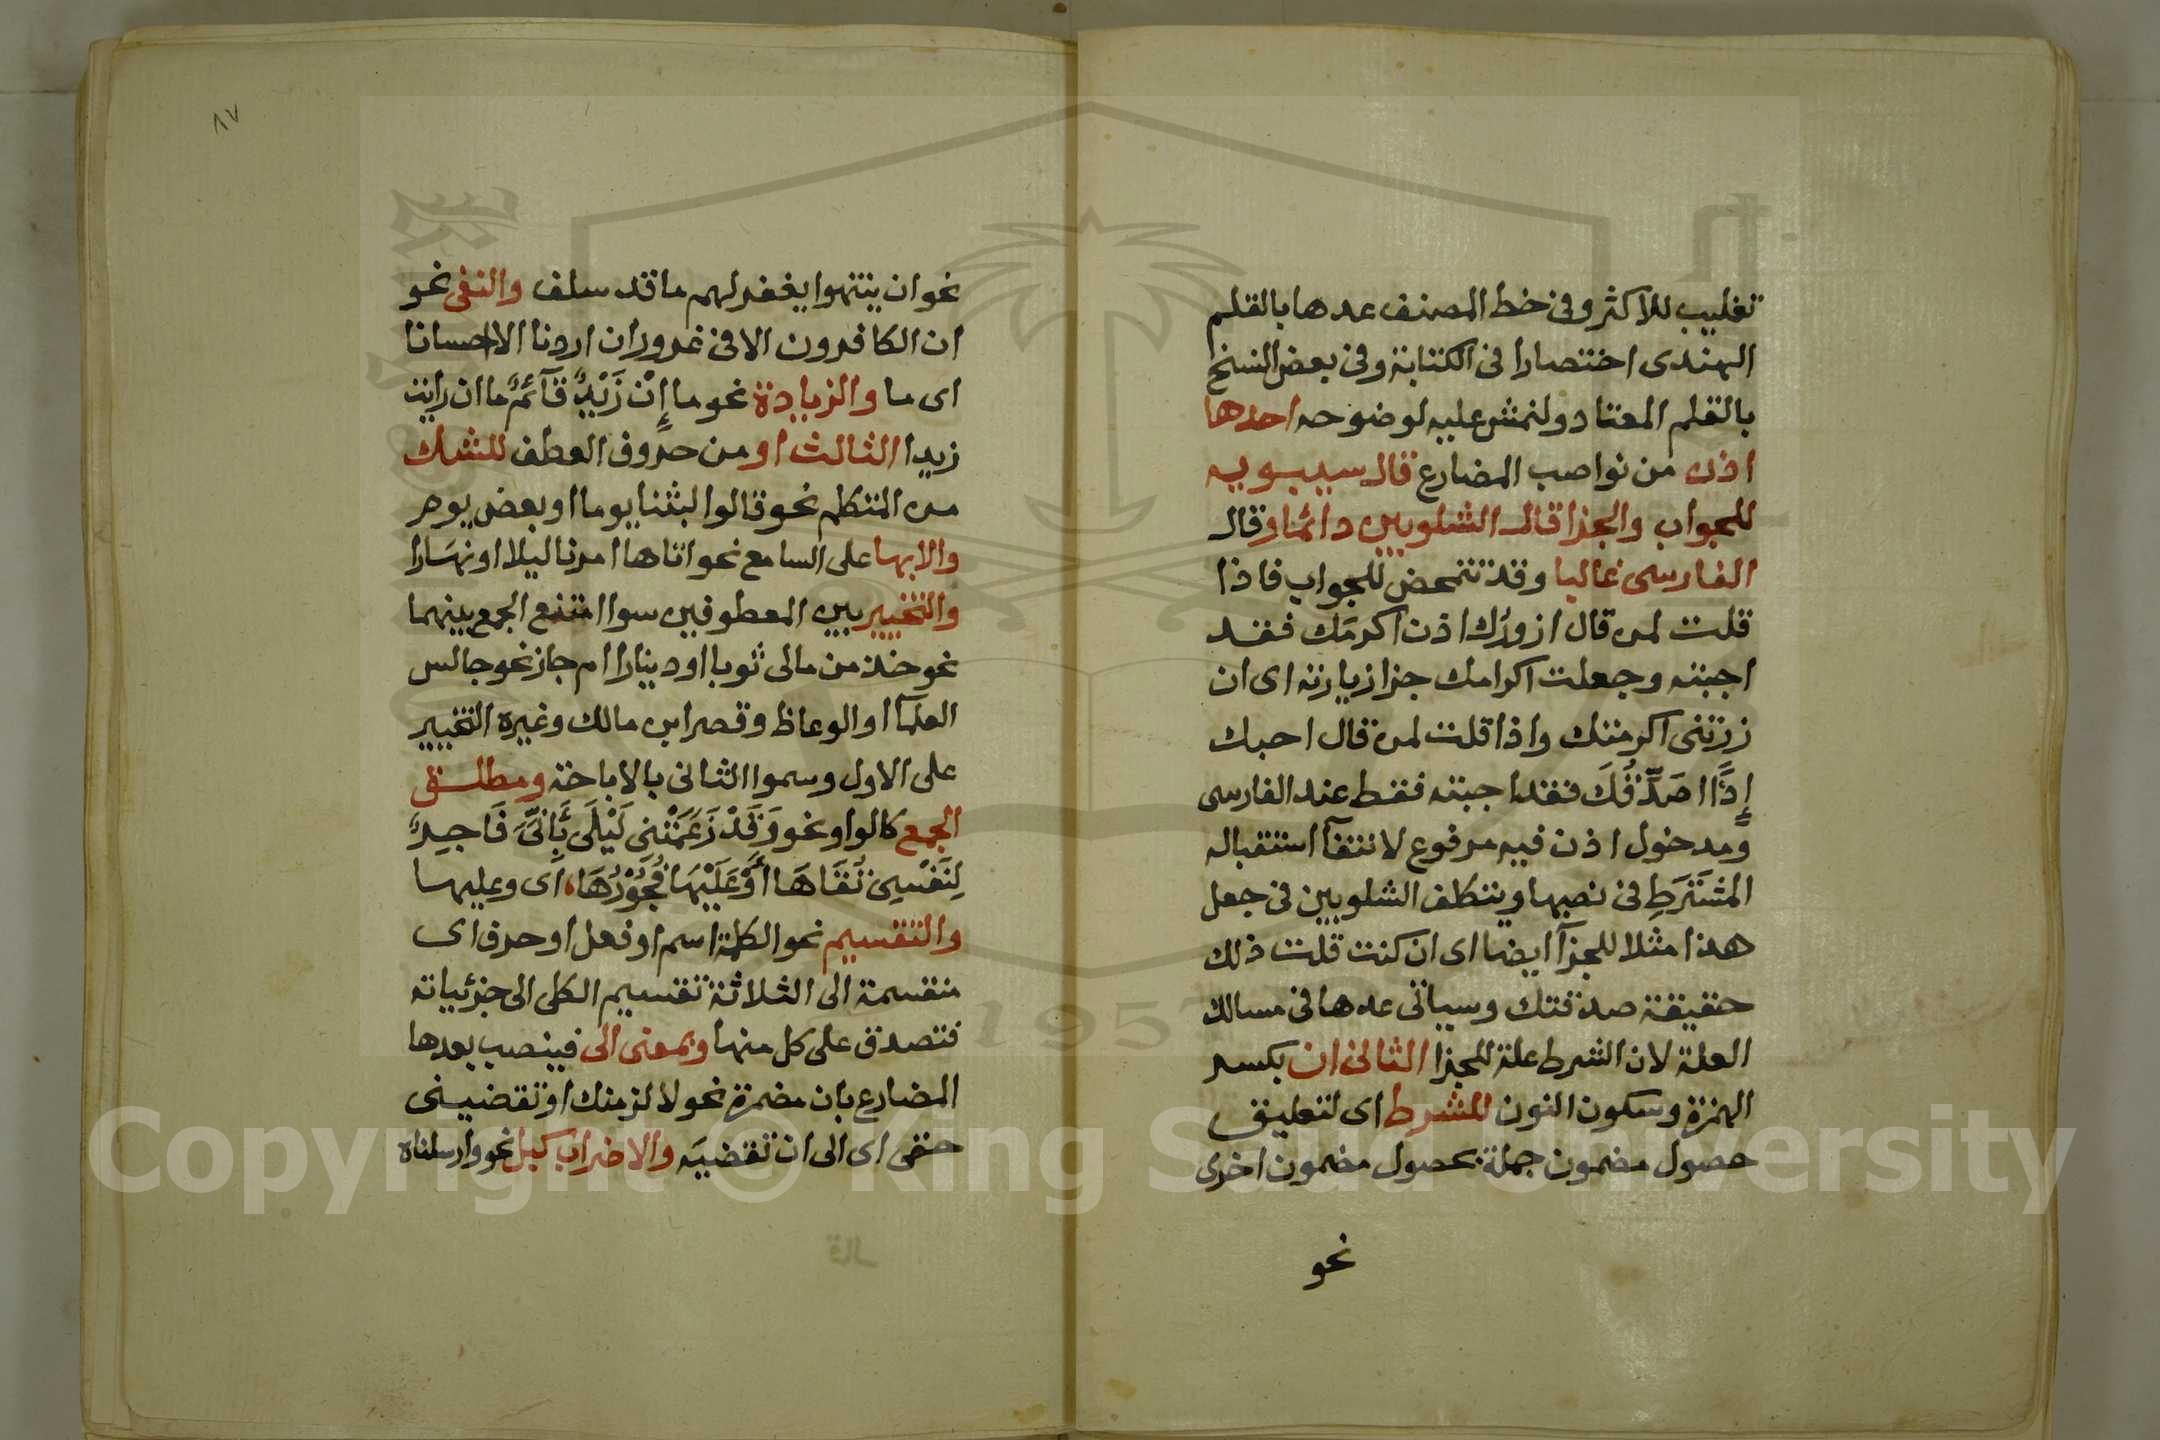 تغليب للاكثر وفى خط المصنف عدها بالقلم
الهندى اختصارا فى الكتابة وفى بعض النسخ
بالقلم المعتاد ولنمش عليه لوضوحه احدها
اذن من نواصب المضارع قال سيبويه
للجواب والجزا قال الشلوبين دائما وقال
الفارسى غالبا وقد تتمحض للجواب فاذا
قلت لمن قال ازورك اذن اكرمَك فقد
اجبته وجعلت اكرامك جزا زيارته اى ان
زرتنى اكرمتك واذا قلت لمن قال احبك
إِذًا اصَدِّقُكَ فقد اجبته فقط عند الفارسى
ومدخول اذن فيه مرفوع لانتفآ استقباله
المشتَرَطِ فى نصبها ويتكلف الشلوبين فى جعل
هذا مثلا للجزآ ايضا اى ان كنت قلت ذلك
حقيقة صدقتك وسياتى عدها فى مسالك
العلة لان الشرط علة للجزا الثانى ان بكسر
الهمزة وسكون النون للشرط اى لتعليق
حصول مضمون جملة بحصول مضمون اخرى
نحو
٨٧
نحو ان ينتهوا يغفر لهم ما قد سلف والنفى نحو
ان الكافرون الا فى غرور ان اردنا الا احسانا
اى ما والزيادة نحو ما إِنْ زَيْدٌ قَآئمٌ ما ان رايت
زيدا الثالث او من حروف العطف للشك
من المتكلم نحو قالوا لبثنا يوما او بعض يوم
والابها على السامع نحو اتاها امرنا ليلا او نهَارا
والتخيير بين المعطوفين سوا امتنع الجمع بينهما
نحو خذ من مالى ثوبا او دينارا ام جاز نحو جالس
العلمآ او الوعاظ وقصر ابن مالك وغيره التخيير
على الاول وسموا الثانى بالاباحة ومطلق
الجمع كالواو نحو وَقَدْ زَعَمَتْنِى لَيْلَى بِأَنِّىَ فَاجِرٌ
لِنَفْسِىْ تُقَاهَا أَوْ عَلَيْهَا فُجُوْرُهَا، اى وعليها
والتقسيم نحو الكلمة اسم او فعل او حرف اى
منقسمة الى الثلاثة تقسيم الكلى الى جزئياته
فتصدق على كل منها وبمعنى الى فينصب بعدها
المضارع بان مضمرة نحو لالزمنك او تقضينى
حقى اى الى ان تقضيَه والاضراب كبل نحو وارسلناه
قال
1957
Copyright © King Saud University